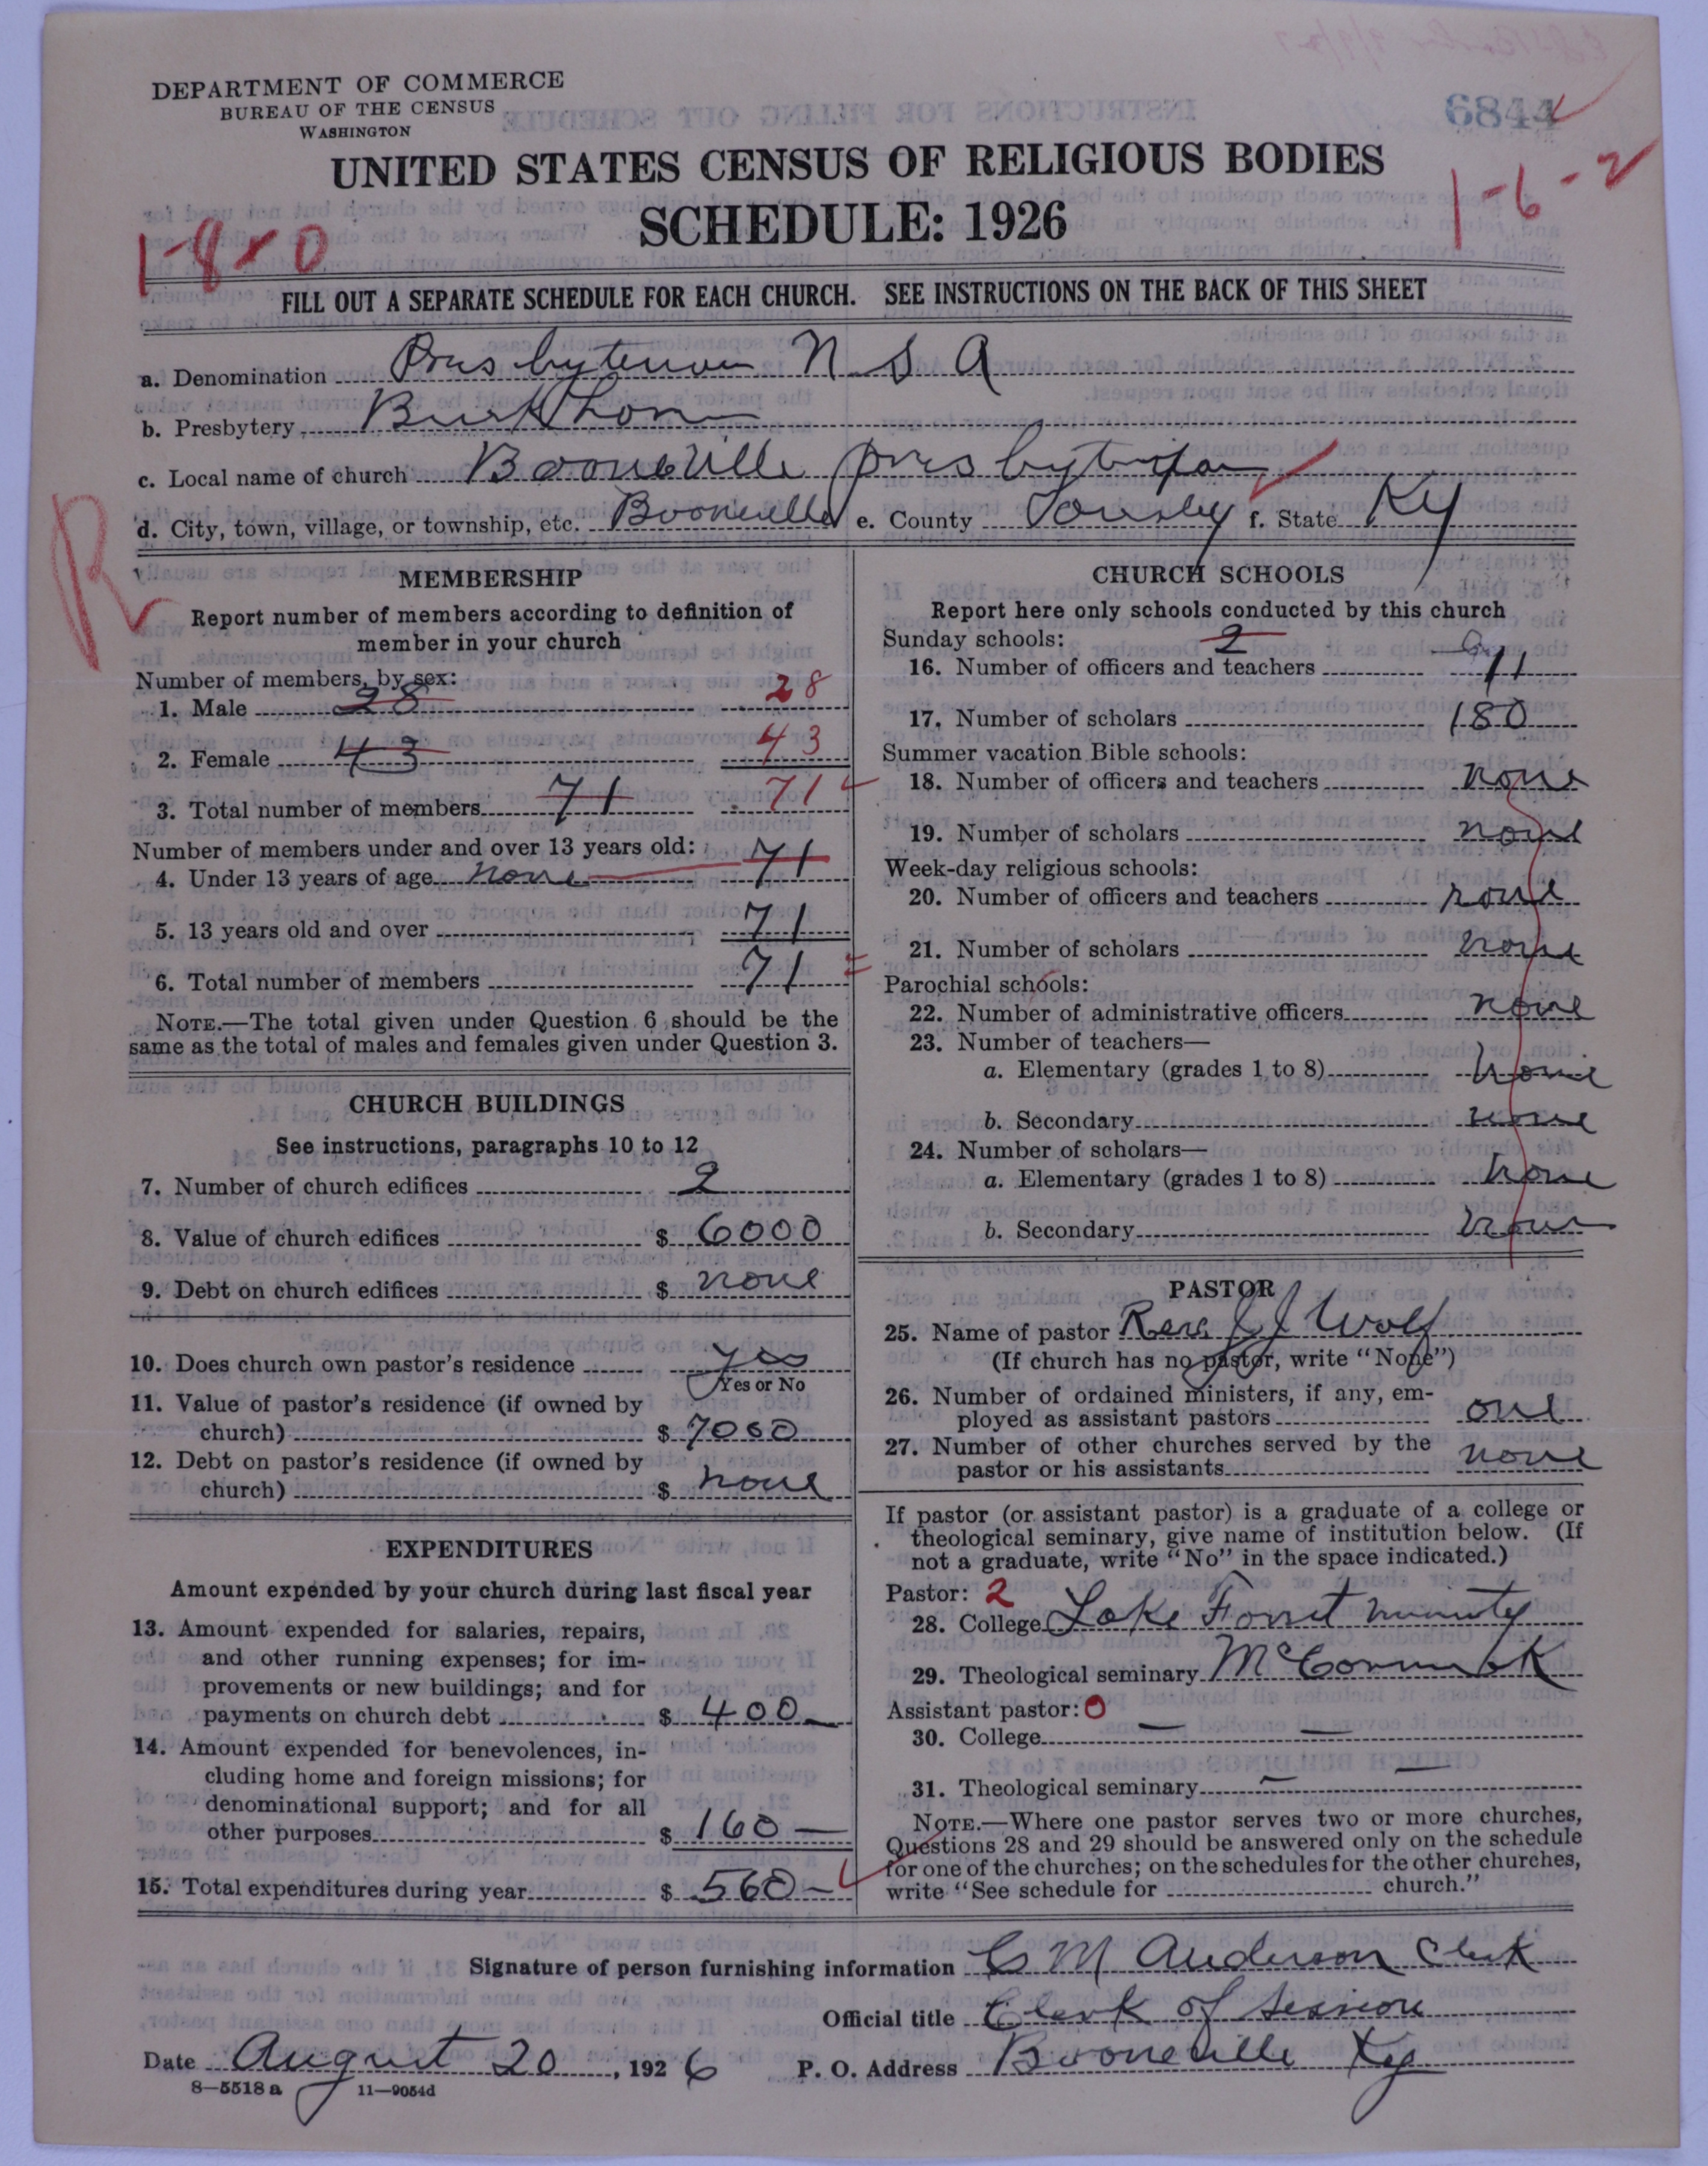 DEPARTMENT OF COMMERCE
BUREAU OF THE CENSUS
WASHINGTON
6844
UNITED STATES CENSUS OF RELIGIOUS BODIES
SCHEDULE: 1926
1-6-2
1-8-0
FILL OUT A SEPARATE SCHEDULE FOR EACH CHURCH. SEE INSTRUCTIONS ON THE BACK OF THIS SHEET
a. Denomination Presbyterian U S A
b. Presbytery
c. Local name of church Booneville Presbyterian
d. City, town, village, or township, etc. Booneville e. County f. State Ky
R
MEMBERSHIP
Report number of members according to definition of
member in your church
Number of members, by sex:
1. Male 28 28
2. Female 43 43
3. Total number of members 71 71
Number of members under and over 13 years old:
4. Under 13 years of age none 71
5. 13 years old and over 71
6. Total number of members 71
NOTE.—The total given under Question 6 should be the
same as the total of males and females given under Question 3.
CHURCH BUILDINGS
See instructions, paragraphs 10 to 12
7. Number of church edifices 2
8. Value of church edifices $ 6000
9. Debt on church edifices $ none
10. Does church own pastor's residence yes
Yes or No
11. Value of pastor's residence (if owned by
church) $ 7000
12. Debt on pastor's residence (if owned by
church) $ none
EXPENDITURES
Amount expended by your church during last fiscal year
13. Amount expended for salaries, repairs,
and other running expenses; for im-
provements or new buildings; and for
payments on church debt $ 400 —
14. Amount expended for benevolences, in-
cluding home and foreign missions; for
denominational support; and for all
other purposes $ 160 —
15. Total expenditures during year $ 560 —
CHURCH SCHOOLS
Report here only schools conducted by this church
Sunday schools: 2
16. Number of officers and teachers 11
17. Number of scholars 180
Summer vacation Bible schools:
18. Number of officers and teachers none
19. Number of scholars none
Week-day religious schools:
20. Number of officers and teachers none
21. Number of scholars none
Parochial schools:
22. Number of administrative officers none
23. Number of teachers—
a. Elementary (grades 1 to 8) none
b. Secondary none
24. Number of scholars—
a. Elementary (grades 1 to 8) none
b. Secondary none
PASTOR
25. Name of pastor Rev. J J Wolf
(If church has no pastor, write "None")
26. Number of ordained ministers, if any, em-
ployed as assistant pastors one
27. Number of other churches served by the
pastor or his assistants none
If pastor (or assistant pastor) is a graduate of a college or
theological seminary, give name of institution below. (If
not a graduate, write "No" in the space indicated.)
Pastor: 2
28. College Lake Forest
29. Theological seminary McCormick
Assistant pastor: 0
30. College — —
31. Theological seminary — —
NOTE.—Where one pastor serves two or more churches,
Questions 28 and 29 should be answered only on the schedule
for one of the churches; on the schedules for the other churches,
write "See schedule for church."
Signature of person furnishing information C M Anderson Clerk
Official title Clerk of Session
Date August 20, 1926 P. O. Address Booneville Ky
8—5518 a 11—9054d